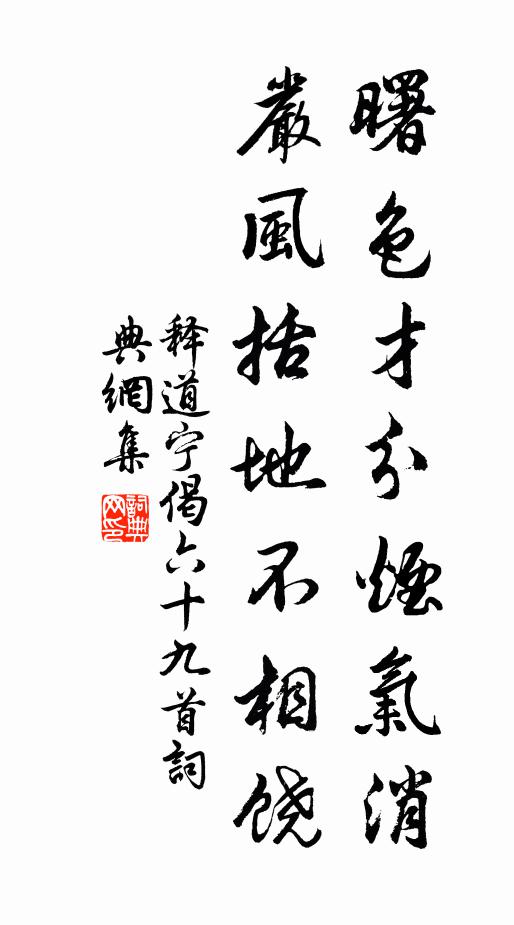 曙色才分煙氣消
嚴風括地不相饶
释道宁偈六十九首詞
典網集
詞典网印